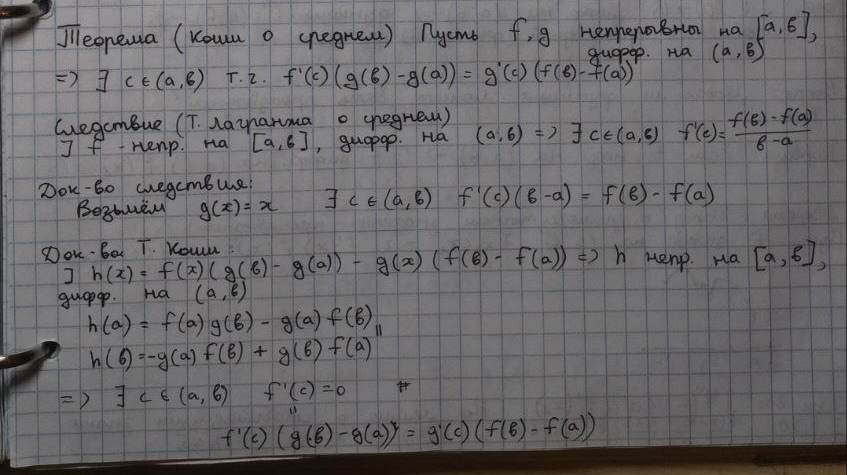 Теорема (Коши о среднем) Пусть f, g непрерывны на [a, в],
дифф. на (a, в)
=> ∃ c ∈ (a, в) т.ч. f'(c) (g(в) - g(a)) = g'(c) (f(в) - f(a))
Следствие (Т. Лагранжа о среднем)
] f - непр. на [a, в], дифф. на (a, в) => ∃ c ∈ (a, в) f'(c) = f(в) - f(a) / в - a
Док-во следствия:
Возьмём g(x) = x ∃ c ∈ (a, в) f'(c) (в - a) = f(в) - f(a)
Док-во Т. Коши:
] h(x) = f(x) (g(в) - g(a)) - g(x) (f(в) - f(a)) => h непр. на [a, в],
дифф. на (a, в)
h(a) = f(a) g(в) - g(a) f(в)
||
h(в) = -g(a) f(в) + g(в) f(a)
=> ∃ c ∈ (a, в) f'(c) = 0 #
||
f'(c) (g(в) - g(a)) = g'(c) (f(в) - f(a))